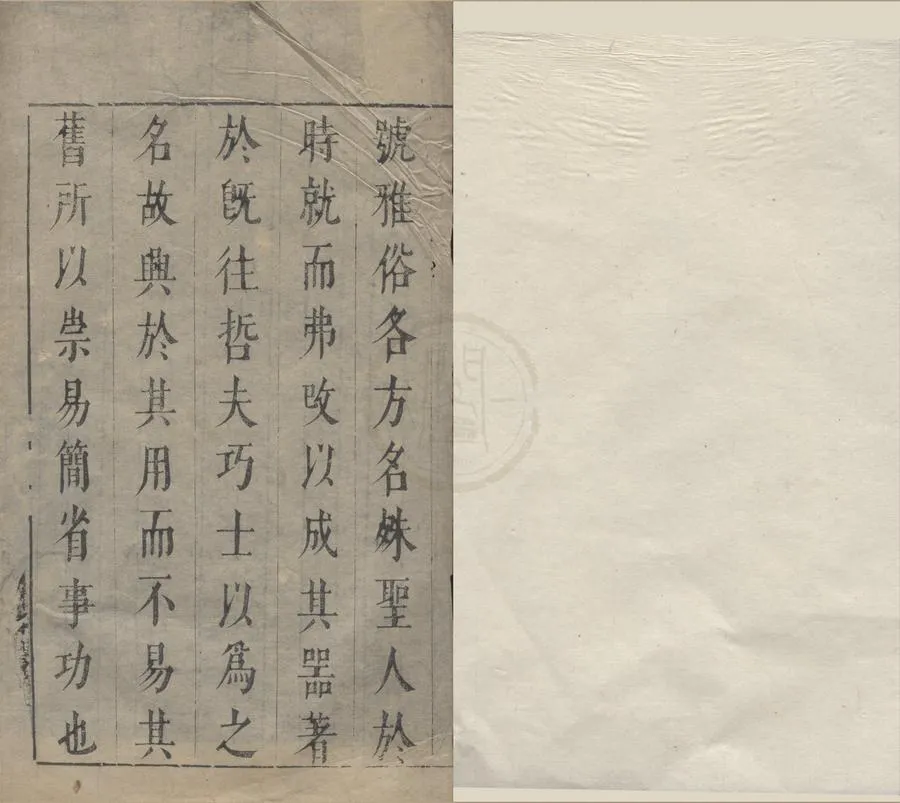 號雅俗各方名姝聖人於
時就而弗改以成其器著
於旣往哲夫巧士以爲之
名故興於其用而不易其
舊所以崇易簡省事功也